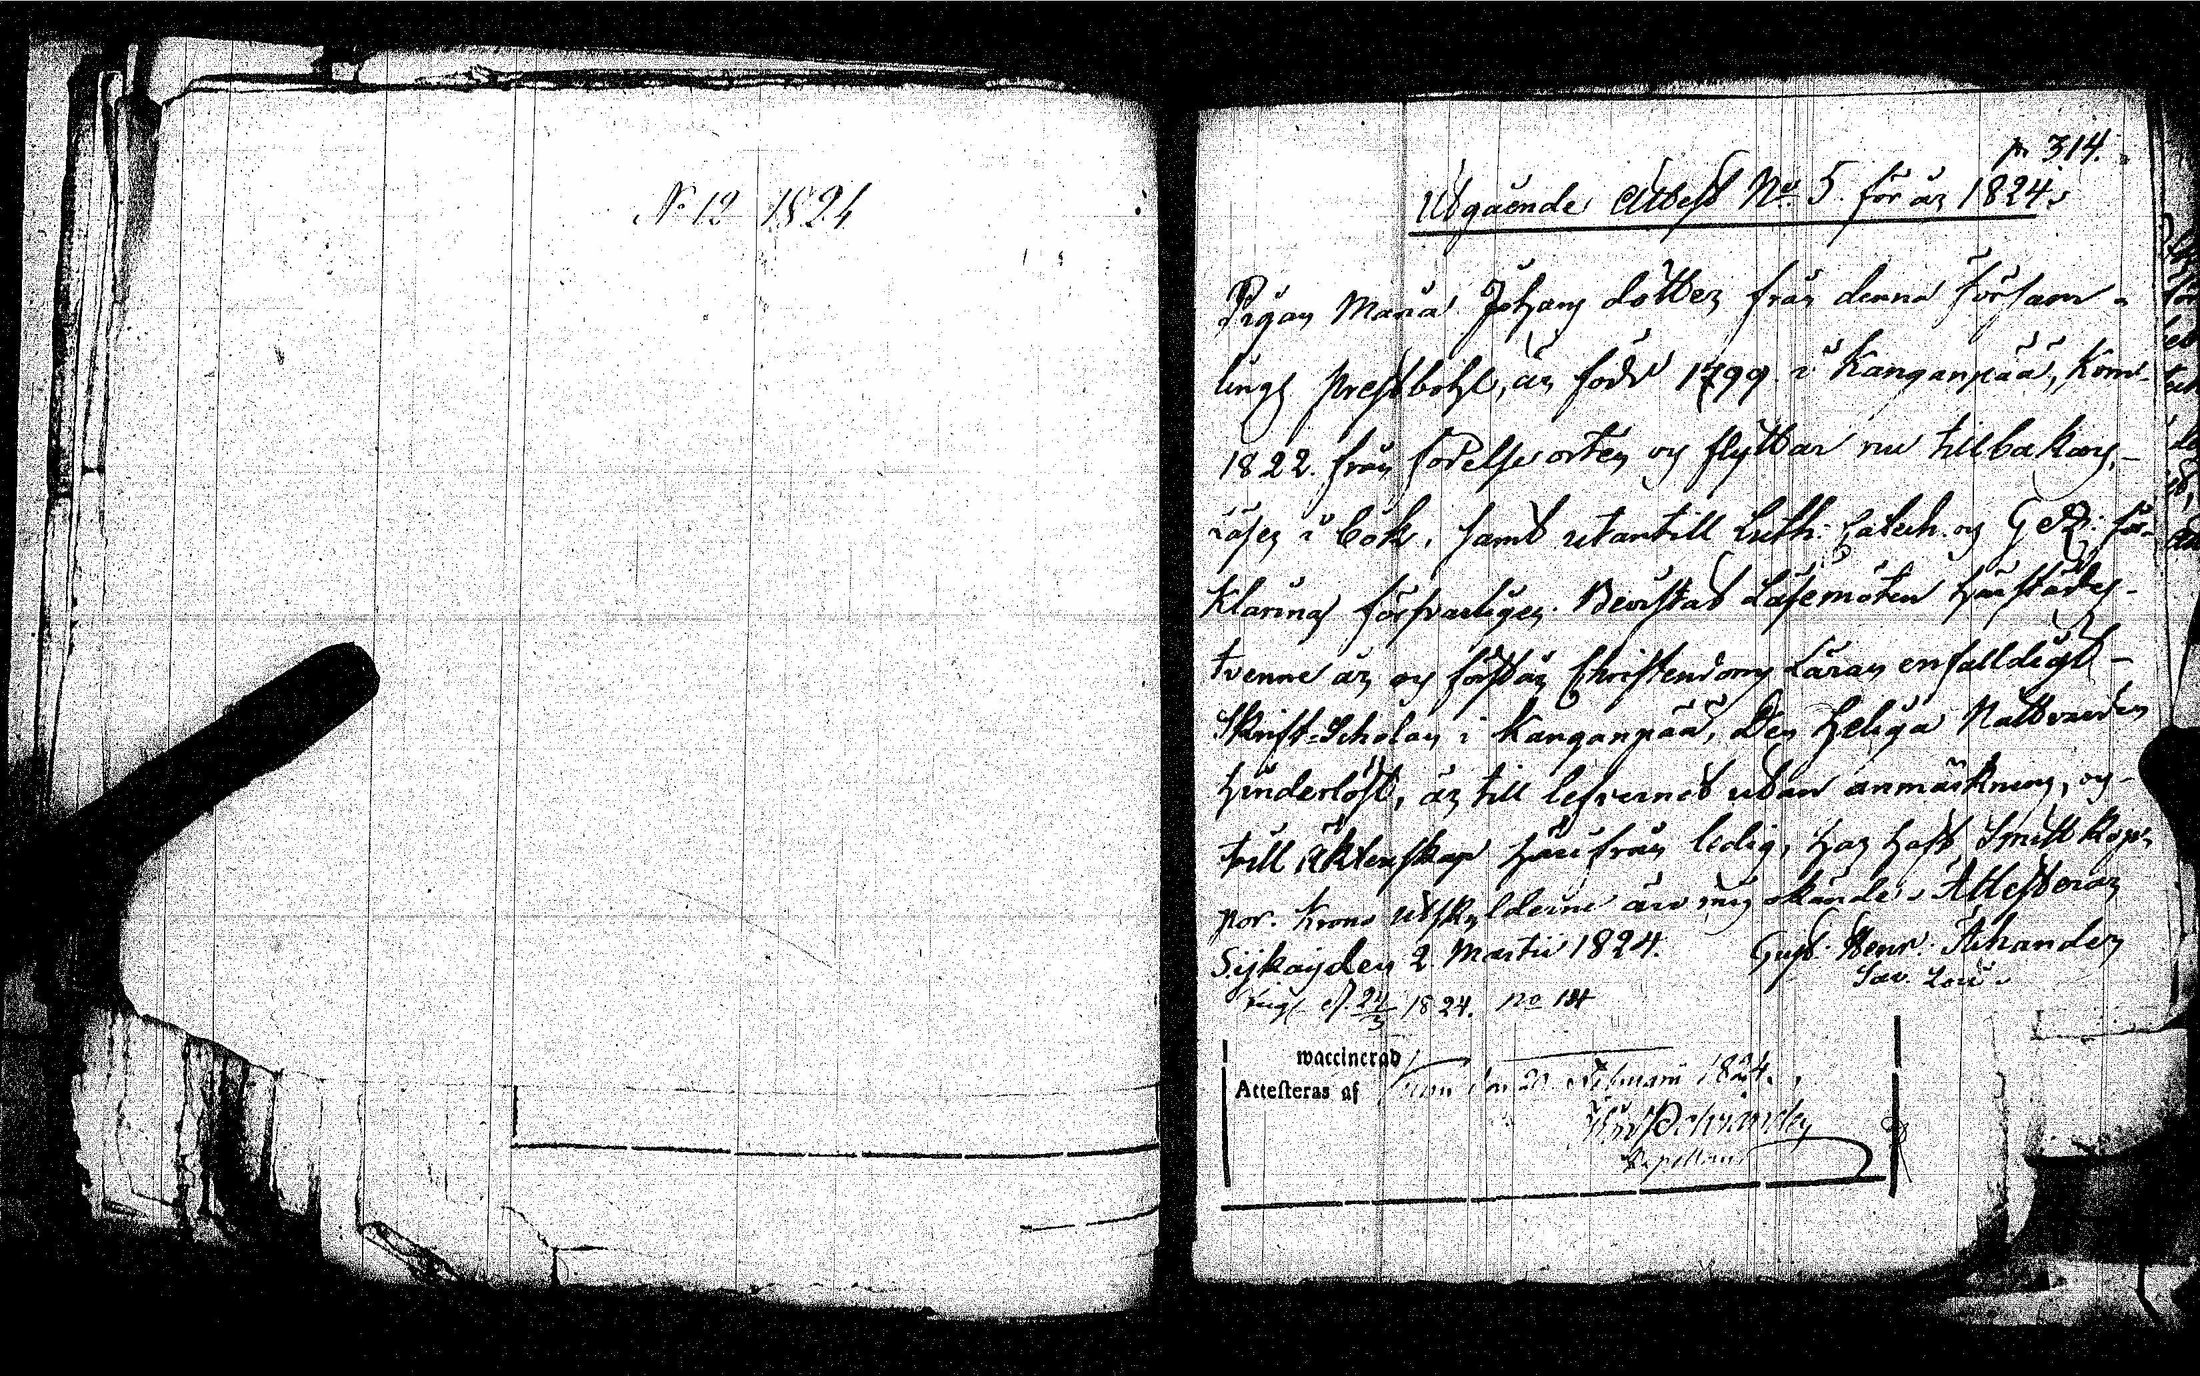 N:o 12 1824
p. 314.
Utgående Attest N:o 5. för år 1824.
Pigan Maria Johans dotter från denna Försam-
lings Prestbohl, är född 1799 i Kanganpää, kom-
1822. från födelse orten och flyttar nu tillbakars,
Läser i bok, samt utantill Luth: Catech. och för-
klaring försvarligen. Bevistat Läsemöten härstädes
tvenne år och förstår Christendoms Läran enfaldigt
Skrift-Scholan i Kanganpää, Den Heliga Nattvarden
hinderlöst, är till lefvernet utan anmärkning, och
till Äktenskap härifrån ledig, har haft Smitt kop-
por. Krono utskylderne äro mig okände. Attesterar
Sijkaisden 2 Martii 1824. Gust. Henr.
1824. no
waccinerad
Attesteras af den 20 Februarii 1824.
Capellan